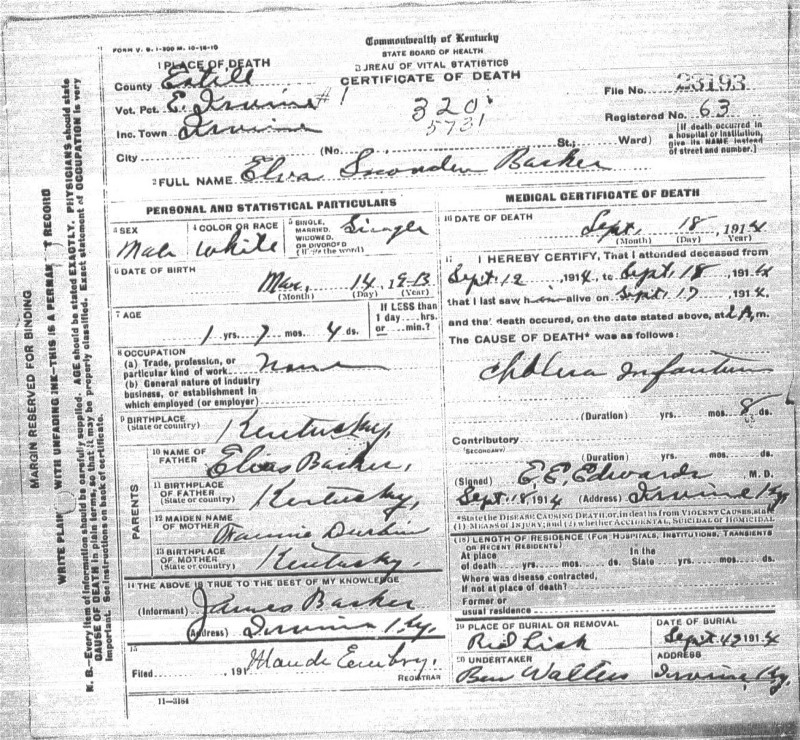 FORM V. S. 1-300 M. 10-18-10
Commonwealth of Kentucky
STATE BOARD OF HEALTH
BUREAU OF VITAL STATISTICS
CERTIFICATE OF DEATH
1 PLACE OF DEATH
County Estill
Vot. Pct. E. Irvine #1
Inc. Town Irvine
City
(No. St.; Ward)
320
5731
File No. 23193
Registered No. 63
[If death occurred in
a hospital or institution,
give its NAME instead
of street and number.]
2 FULL NAME Elva Snowden Barker
PERSONAL AND STATISTICAL PARTICULARS
3 SEX Male
4 COLOR OR RACE White
5 SINGLE, MARRIED, WIDOWED, OR DIVORCED (Write the word) Single
6 DATE OF BIRTH
Mar, 14 1913
(Month) (Day) (Year)
7 AGE
1 yrs. 7 mos. 4 ds.
If LESS than
1 day....hrs.
or....min.?
8 OCCUPATION
(a) Trade, profession, or
particular kind of work None
(b) General nature of industry
business, or establishment in
which employed (or employer)
9 BIRTHPLACE
(State or country) Kentucky,
PARENTS
10 NAME OF
FATHER Elias Barker,
11 BIRTHPLACE
OF FATHER
(State or country) Kentucky,
12 MAIDEN NAME
OF MOTHER Fannie Durbin
13 BIRTHPLACE
OF MOTHER
(State or country) Kentucky.
14 THE ABOVE IS TRUE TO THE BEST OF MY KNOWLEDGE
(Informant) James Barker
(Address) Irvine Ky.
15
Filed 191 Maude Embry.
REGISTRAR
11-3184
MEDICAL CERTIFICATE OF DEATH
16 DATE OF DEATH
Sept. 18, 1914
(Month) (Day) Year)
17 I HEREBY CERTIFY, That I attended deceased from
Sept. 12 1914, to Sept. 18, 1914
that I last saw him alive on Sept. 17, 1914,
and that death occured, on the date stated above, at 2 A.m.
The CAUSE OF DEATH* was as follows:
Cholera Infantum
(Duration) yrs. mos. 8 ds.
Contributory
(SECONDARY)
(Duration) yrs. mos. ds.
(Signed) E. E. Edwards M. D.
Sept. 18, 1914 (Address) Irvine Ky.
*State the DISEASE CAUSING DEATH, or, in deaths from VIOLENT CAUSES, state
(1) MEANS OF INJURY; and (2) whether ACCIDENTAL, SUICIDAL or HOMICIDAL
(18) LENGTH OF RESIDENCE (FOR HOSPITALS, INSTITUTIONS, TRANSIENTS
OR RECENT RESIDENTS)
At place In the
of death yrs. mos. ds. State yrs. mos. ds.
Where was disease contracted,
if not at place of death?
Former or
usual residence
19 PLACE OF BURIAL OR REMOVAL
DATE OF BURIAL
Sept. 1914
20 UNDERTAKER
Ben Walters
ADDRESS
Irvine Ky.
MARGIN RESERVED FOR BINDING
WRITE PLAIN WITH UNFADING INK—THIS IS A PERMAN T RECORD
N. B.—Every item of information should be carefully supplied. AGE should be stated EXACTLY. PHYSICIANS should state
CAUSE OF DEATH in plain terms, so that it may be properly classified. Exact statement of OCCUPATION is very
important. See instructions on back of certificate.